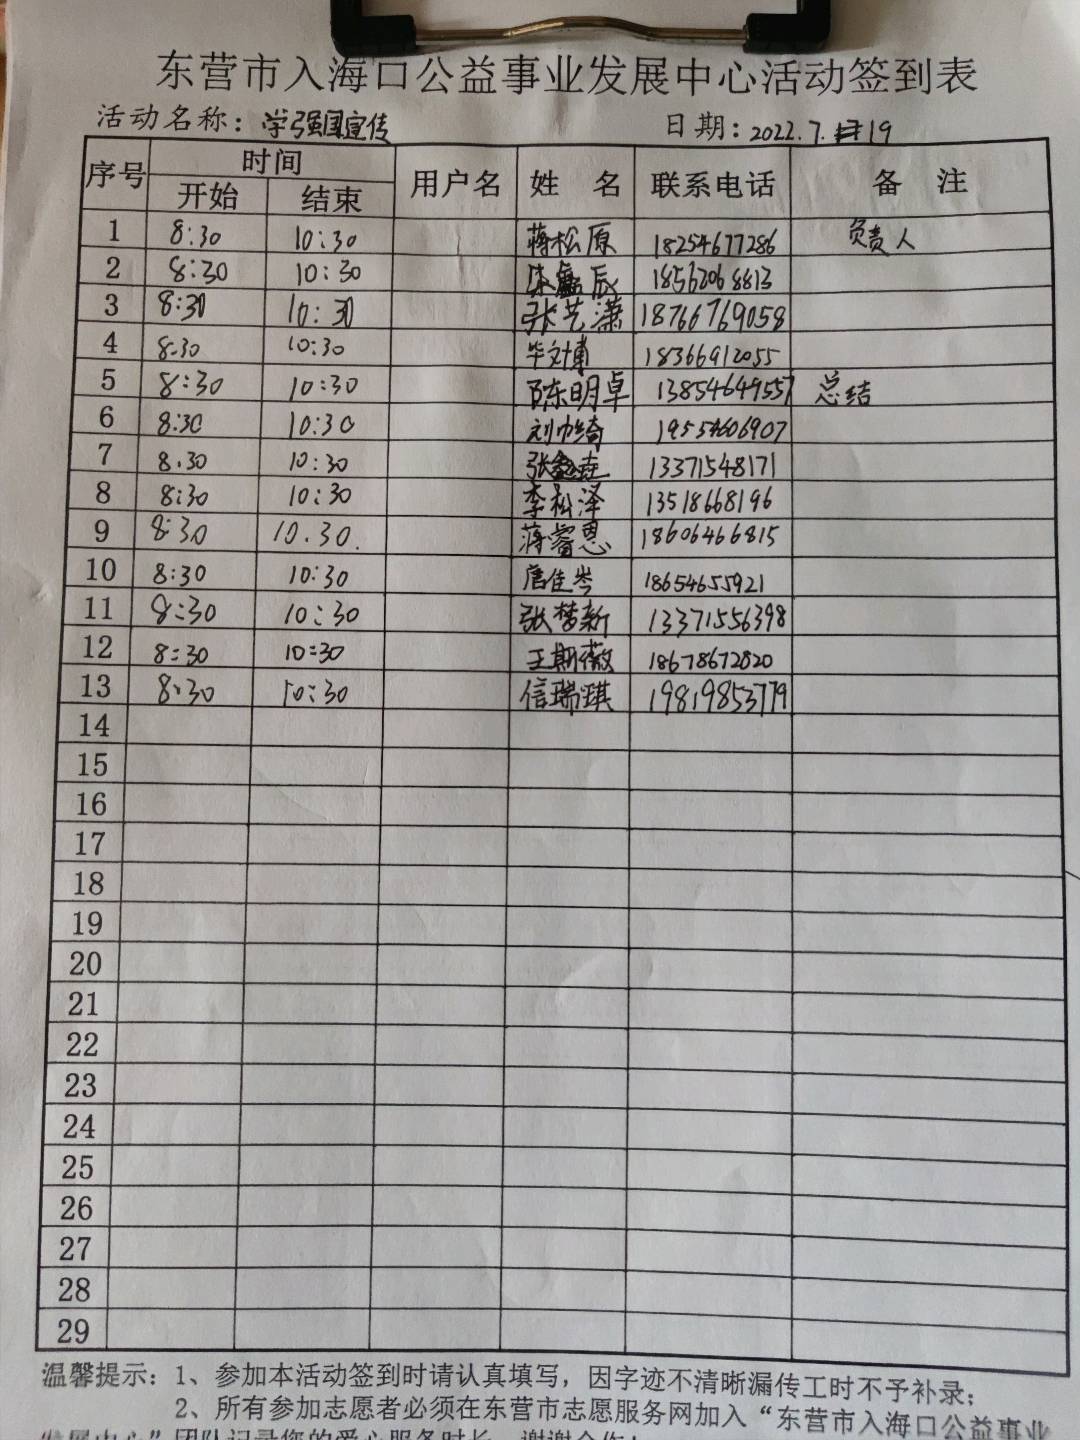 东营市入海口公益事业发展中心活动签到表
活动名称：学强国宣传 日期：2022.7.19
序号 时间 用户名 姓 名 联系电话 备 注
开始 结束
1 8:30 10:30 蒋松原 18254677286 负责人
2 8:30 10:30 辰 18562068813
3 8:30 10:30 张艺潇 18766769058
4 8.30 10:30 毕文博 18366912055
5 8:30 10:30 陈明卓 13854649557 总结
6 8:30 10:30 刘巾绮 19554606907
7 8.30 10:30 张 13371548171
8 8:30 10:30 李松泽 13518668196
9 8:30 10.30. 蒋睿恩 18606466815
10 8:30 10:30 唐佳岑 18654655921
11 8:30 10:30 张梦新 13371556398
12 8:30 10:30 王期薇 18678672820
13 8:30 10:30 信瑞琪 19819853779
14
15
16
17
18
19
20
21
22
23
24
25
26
27
28
29
温馨提示：1、参加本活动签到时请认真填写，因字迹不清晰漏传工时不予补录；
2、所有参加志愿者必须在东营市志愿服务网加入“东营市入海口公益事业
发展中心”团队记录您的爱心服务时长，谢谢合作！